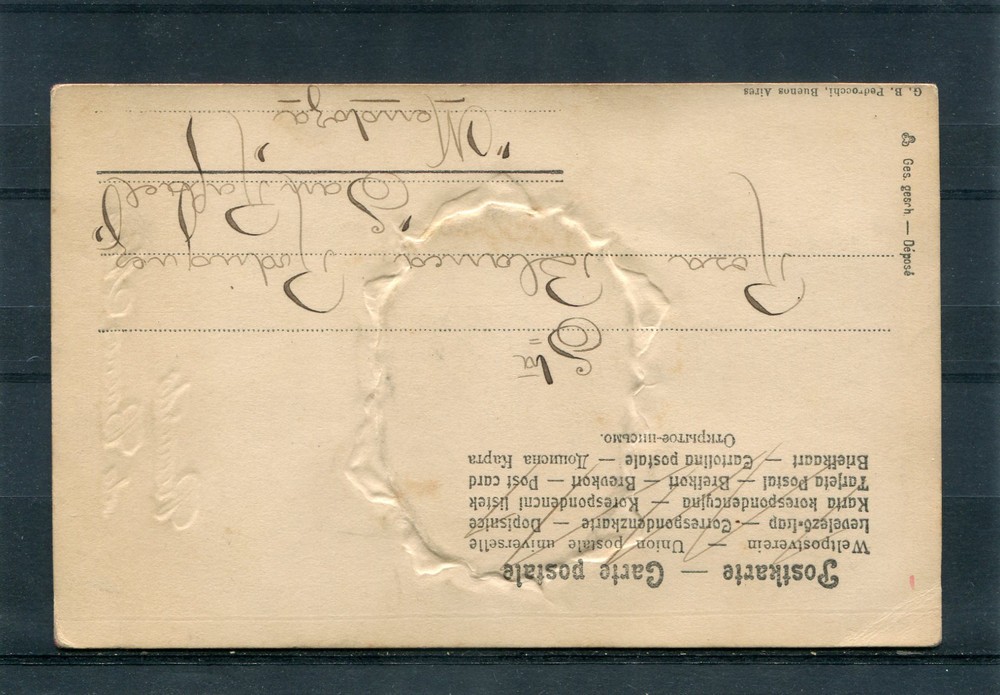 Postkarte — Carte postale
Weltpostverein — Union postale universelle
Levelező-Lap — Correspondenzkarte — Dopisnice
Karta korespondencyjna — Korespondenční lístek
Tarjeta Postal — Brefkort — Brevkort — Post card
Briefkaart — Cartolina postale — Дописна Карта
Открытое-письмо.
Sta
Rosa Blanca Rodriguez
"San Rafael"
"Mendoza"
G. B. Pedrocchi, Buenos Aires
Ges. gesch. — Déposé